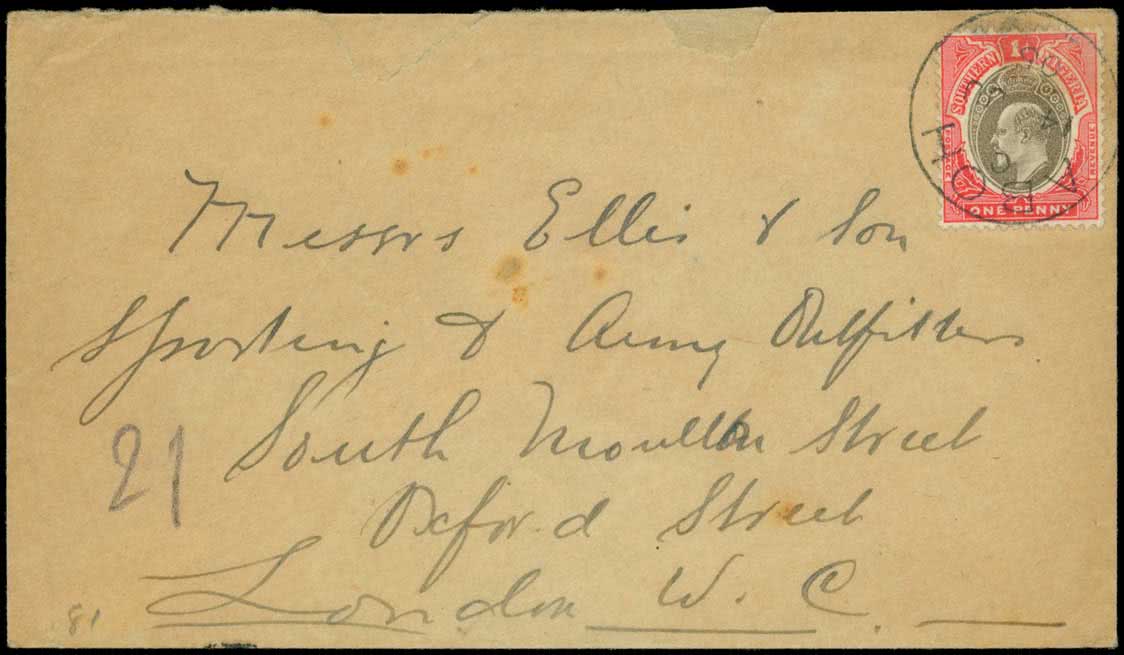 SOUTHERN 1d NIGERIA
POSTAGE
REVENUE
ONE PENNY
ABOH
Messrs Ellis & Son
Sporting & Army Outfitters
21
South Moulton Street
Oxford Street
London W. C.
81